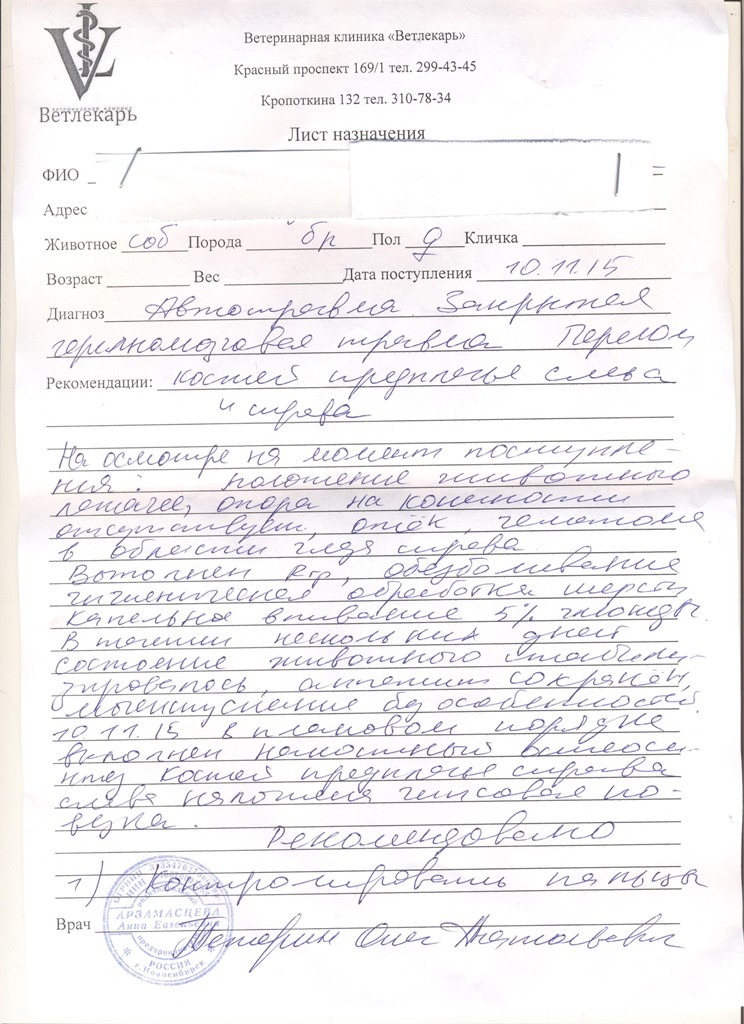 Ветеринарная клиника «Ветлекарь»
Красный проспект 169/1 тел. 299-43-45
Кропоткина 132 тел. 310-78-34
ветеринарная клиника
Ветлекарь
Лист назначения
ФИО
Адрес
Животное соб Порода бр Пол д Кличка
Возраст Вес Дата поступления 10.11.15
Диагноз Автотравма. Закрытая
черепномозговая травма Перелом
Рекомендации: костей предплечье слева
и справа
На осмотре на момент поступле-
ния: положение животного
лежачее, опора на конечности
отсутствует, отёк, гематома
в области глаз справа
Выполнен Rгр, обезболивание
гигиеническая обработка шерсти
Капельное вливание 5% глюкозы.
В течении нескольких дней
состояние животного стабили-
зировалось, аппетит сохранён,
мочеиспускение без особенностей
10.11.15 в плановом порядке
выполнен накостный остеоси-
нтез костей предплечье справа
слева наложена гипсовая по-
вязка.
Рекомендовано
1) Контролировать пальцы
Врач
АРЗАМАСЦЕВА
Анна Евгеньевна
РОССИЯ
г. Новосибирск
Олег